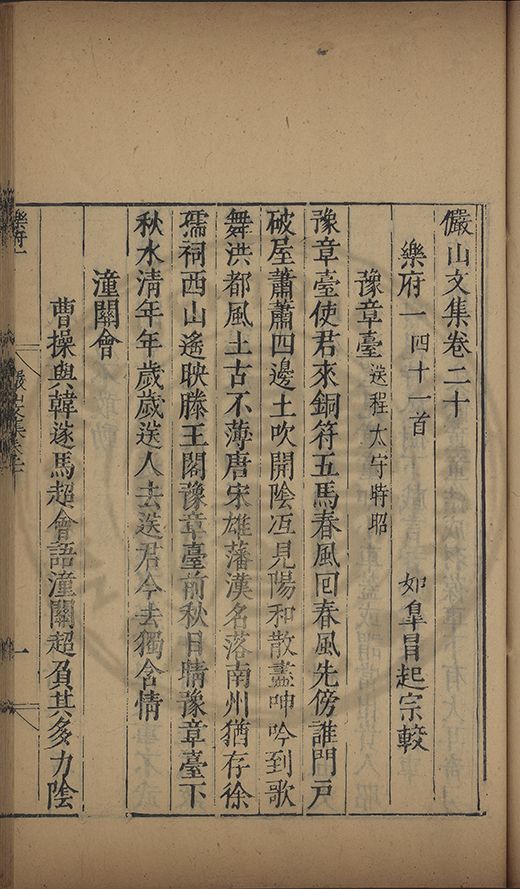 儼山文集卷二十
樂府一 四十一首 如臯冒起宗較
豫章臺 送程太守時昭
豫章臺使君來銅符五馬春風回春風先傍誰門戸
破屋蕭蕭四邊土吹開陰沍見陽和散盡呻吟到歌
舞洪都風土古不薄唐宋雄藩漢名落南州猶存徐
孺祠西山遙映滕王閣豫章臺前秋日晴豫章臺下
秋水清年年歲歲送人去送君今去獨含情
潼關會
曹操與韓遂馬超會語潼關超負其多力陰
樂府一